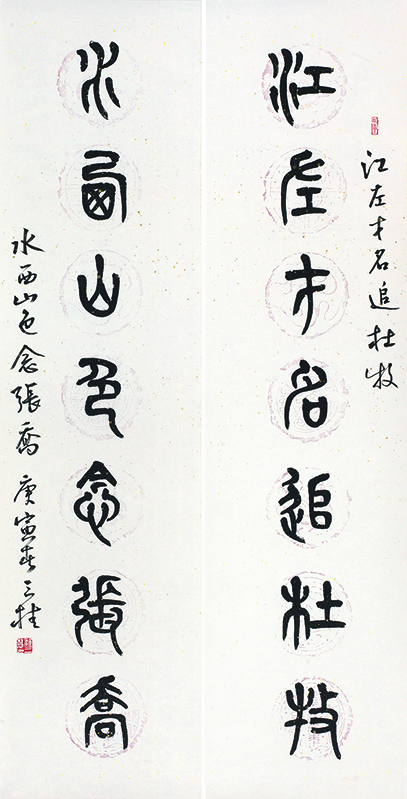 江左才名追杜牧
江左才名追杜牧
水西山色念張喬
水西山色念張喬 庚寅春三桂